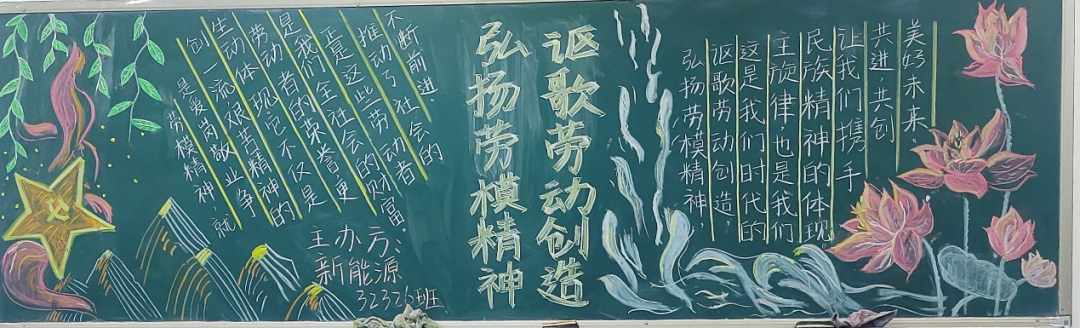 劳模精神,就
是爱岗敬业争
创一流艰苦精神的
生动体现,它不仅是
劳动者的荣誉更
是我们全社会的财富.
正是这些劳动者
推动了社会的
不断前进.
主办方:
新能源
32326班
弘扬劳模精神
讴歌劳动创造
弘扬劳模精神
讴歌劳动创造,
这是我们时代的
主旋律也是我们
民族精神的体现
让我们携手
共进共创
美好未来